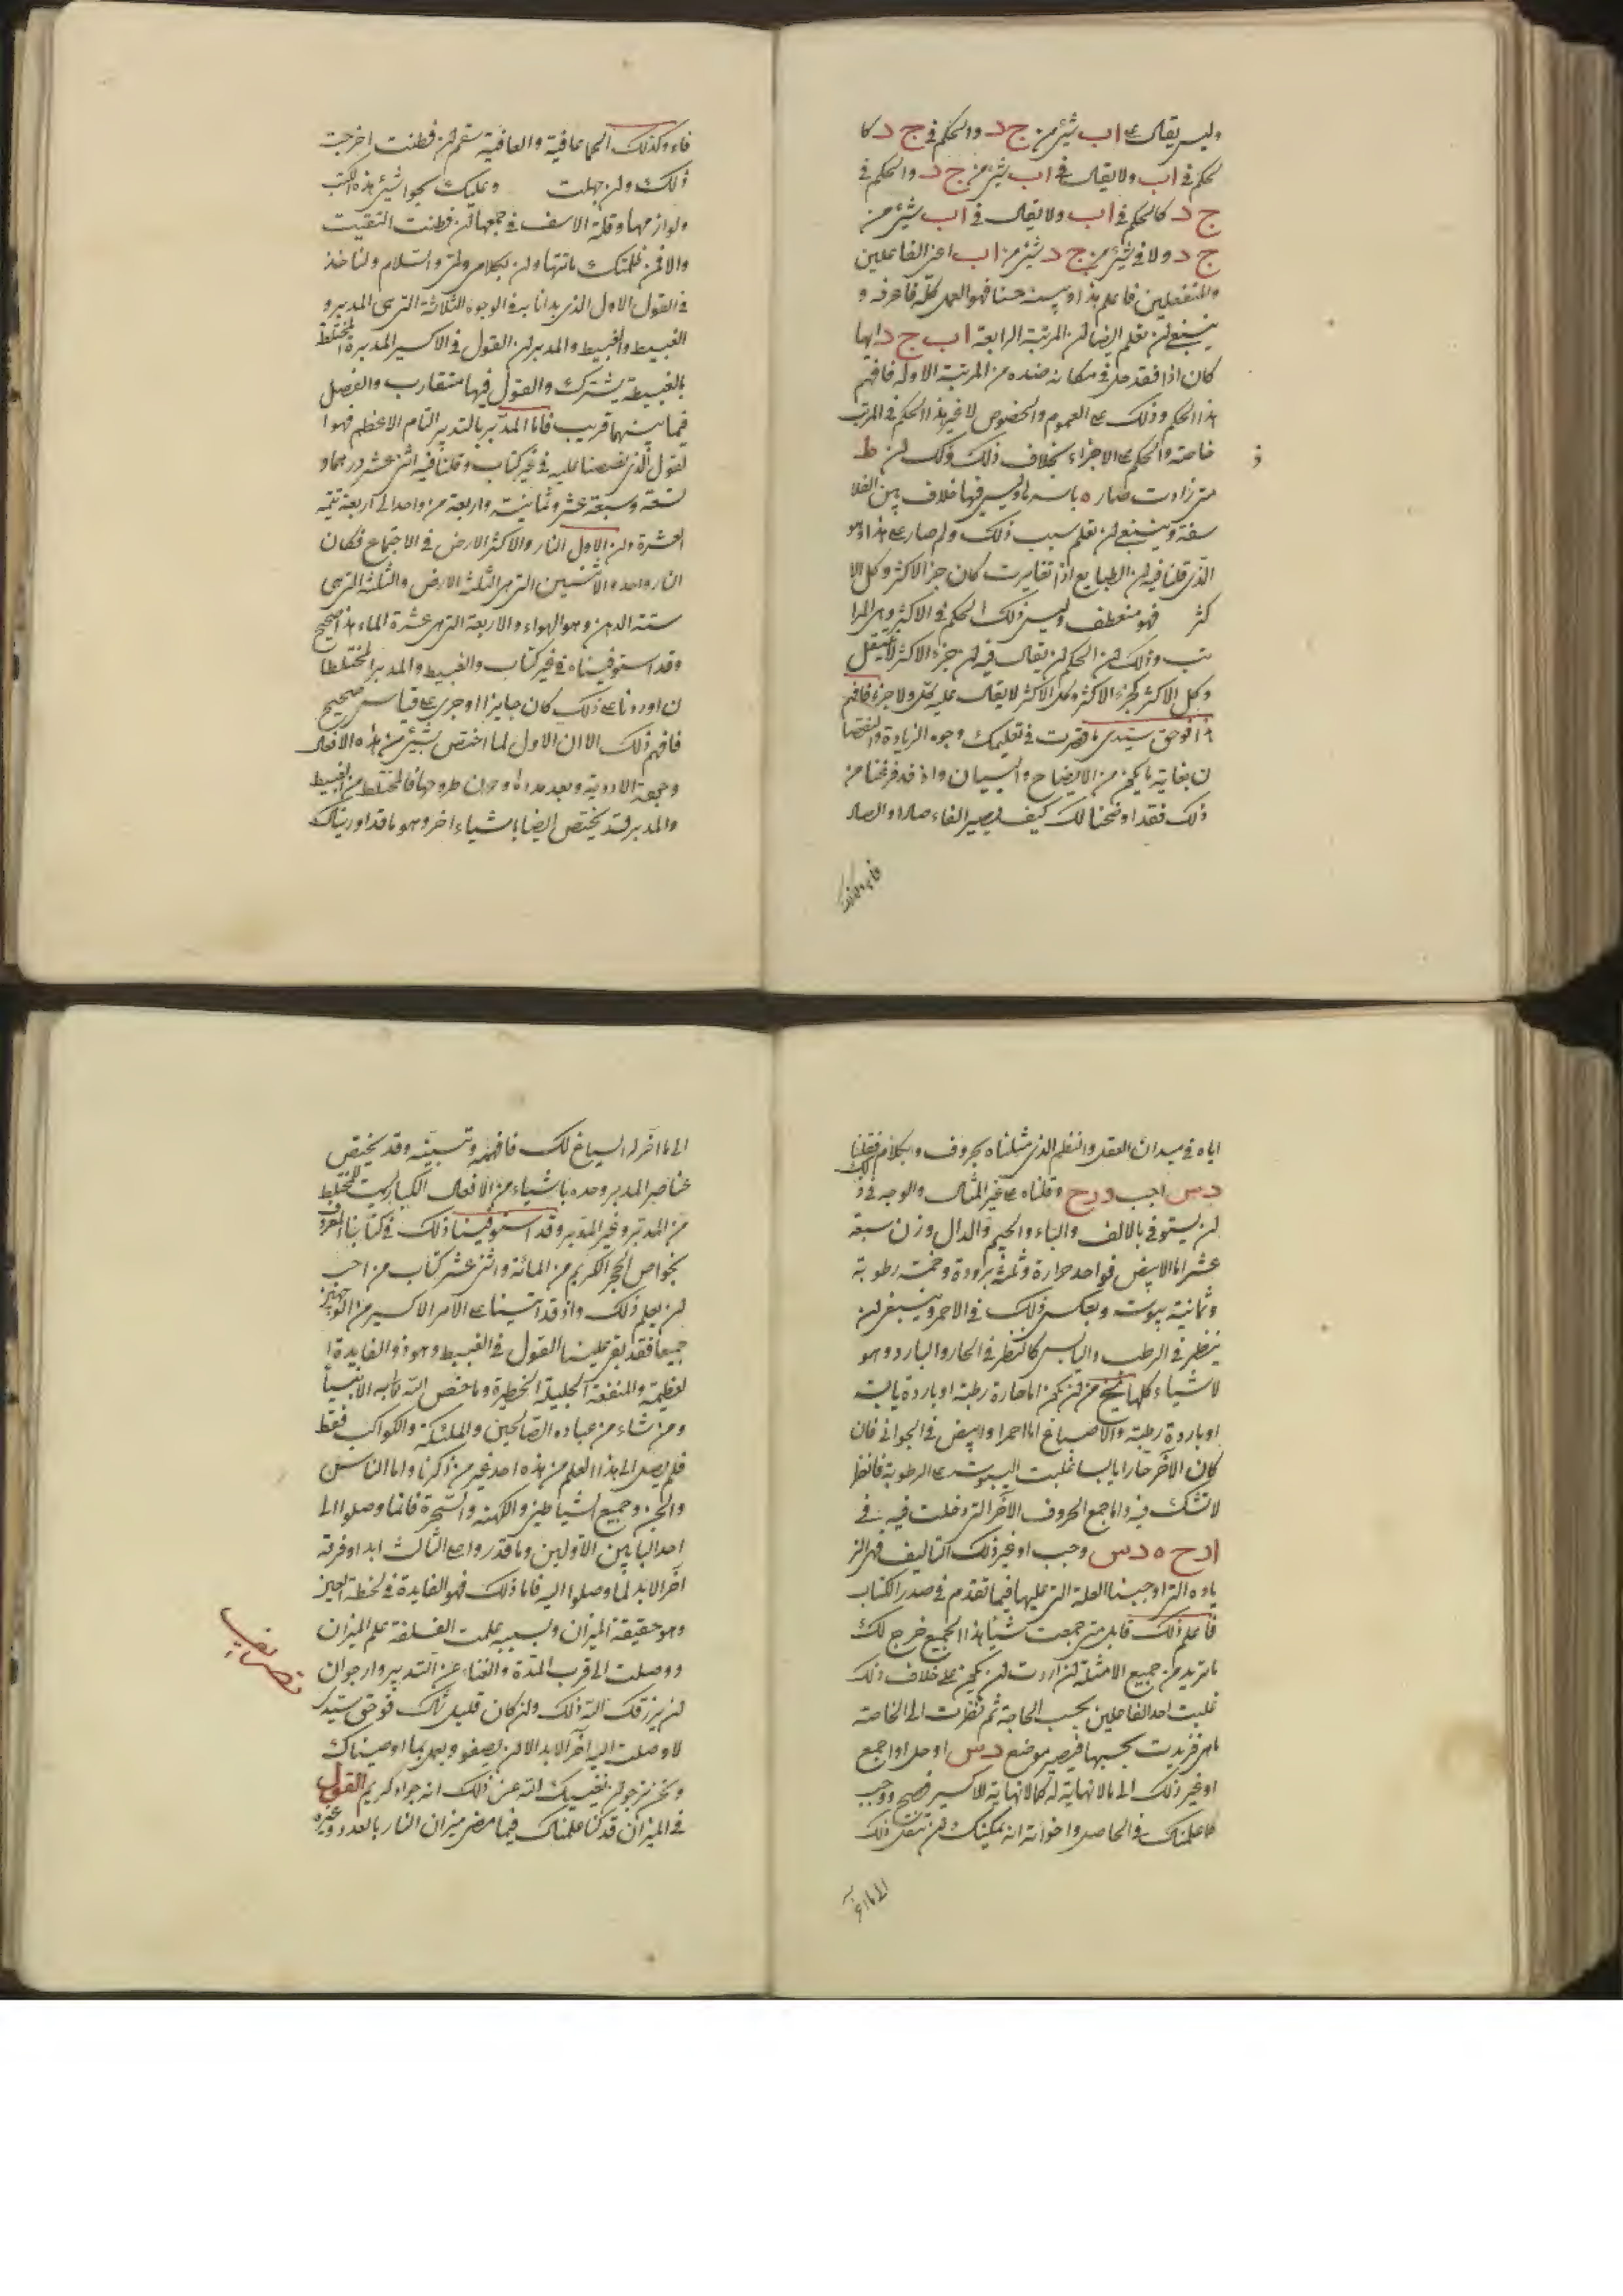 وليس يقال على اب شيئ من ج د والحكم في ج د كا
لحكم في اب ولا يقال في اب شيئ من ج د والحكم في
ج د كالحكم في اب ولا يقال في اب شيئ من
ج د ولا في شيئ من ج د شيئ من اب اعني الفاعلين
والمنفعلين فاعلم هذا وبينه حسنا فهو العمل كله فاعرفه و
ينبغي ان تعلم ايضا ان المرتبة الرابعة اب ج د ايها
كان اذا فقد حل في مكانه ضده من المرتبة الاوله فافهم
هذا الحكم وذلك على العموم والخصوص لا غير هذا الحكم في المرتب
خاصة والحكم على الاجزاء بخلاف ذلك وذلك ان ط
متى زادت صار ه وليس فيها خلاف بين الفلا
سفة وينبغي ان تعلم سبب ذلك ولم صار على هذا وهو
الذي قلنا فيه ان الطبايع اذا تغايرت كان جز الاكثر وكل الا
كثر فهو منعطف وليس ذلك الحكم في الاكثر وهي المرا
تب وذلك ان الحكم ان يقال فيه ان جزء الاكثر لا ينتقل
وكل الاكثر كجزء الاكثر وكل الاكثر لا يقال عليه كل ولا جزء فافهم
هذا فوحق سيدي ما قصرت في تعليمك وجوه الزيادة والنقصا
ن بغاية ما يمكن من الايضاح والبيان واذ قد فرغنا من
ذلك فقد اوضحنا لك كيف يصير الفاء صادا والصاد
فاء وكذلك
فاء وكذلك الحما عافية والعافية سقم ان فطنت اخرجت
ذلك وان جهلت وعليك بجوا شيئ هذه الكتب
ولوازمها وقلة الاسف في جمعها ان فطنت التقيت
والا فمن ظلمتك ما تتها ولن بكلامي ولي والسلام ولناخذ
في القول الاول الذي بدانا به في الوجوه الثلاثة التي هي المدبر و
الغبيط والغبيط والمدبر ان القول في الاكسير المدبرة المختلط
بالغبيطة يشترك والقول فيها متقارب والفصل
فيما بينهما قريب فاما المدبر بالتدبير التام الاعظم فهو ا
لقول الذي نصصنا عليه في غير كتاب وقلنا فيه اثني عشر درهما و
تسعة وسبعة عشر وثمانية واربعة من واحد الى اربعة تتمه
العشرة وان الاول النار والاكثر الارض في الاجتماع فكان
النار واحد والاثنين التي هي الثلثة الارض والثلثة التي هي
ستة الدهن وهو الهواء والاربعة التي هي عشرة الماء هذا صحيح
وقد استوفيناه في غير كتاب والغبيط والمدبر المختلطا
ن اوردنا على ذلك كان جايزا او جرى على قياس صحيح
فافهم ذلك الا ان الاول لما اختص بشيئ من هذه الافعال
وجمعة الادوية وبعد مداها وحوان طروحها فالمختلط من الغبيط
والمدبر قد يختص ايضا باشياء اخر وهو ما قد اوريناك
اياه في ميدان العقل والنظم الذي مثلناه بحروف والكلام فقلنا لك
د س اجب د ح وقلناه على غير المثال والوجه في ذ
ان يستوفي بالالف والباء والجيم والدال وزن سبعة
عشر اما الابيض فواحد حرارة وثلثة برودة وخمسة رطوبة
وثمانية يبوسة وبعكس ذلك في الاحمر وينبغي ان
ينظر في الرطب واليابس كالنظر في الحار والبارد وهو
لاشياء كلها يخرج من ان يكون اما حارة رطبة او باردة يابسة
او باردة رطبة والاصباغ اما احمر او ابيض في الجواني فان
كان الآخر حارا يابسا غلبت اليبوسة على الرطوبة فانظر
لا تشك فيه واما جمع الحروف الآخر التي دخلت فيه في
ا د ح ه د س وجب او غير ذلك التاليف فهي الز
ياده التي اوجبنا العلة التي عليها فيما تقدم في صدر الكتاب
فاعلم ذلك قابل متى جمعت شيئا هذا الجميع خرج لك
ما تريد من جميع الامثلة ان اردت ان يكون على خلاف ذلك
غلبت احد الفاعلين بحسب الحاجة ثم نظرت الى الخاصة
ما هي فزيدت بحسبها فيصير موضع د س او حل او اجمع
او غير ذلك الى ما لا نهاية له كما لا نهاية للاكسير فصح ووجب
ما علمناك في الحاصل واخواته انه يمكنك ان تنقل ذلك
الى ما اخر
الى ما اخر له السياغ لك فافهمه وتبينه وقد يختص
عناصر المدبر وحده باشياء من الافعال الكبار ليست للمختلط
من المدبر وغير المدبر وقد استوفينا ذلك في كتابنا المعروف
بخواص الحجر الكريم من المائة واثني عشر كتاب من احب
ان يعلم ذلك واذ قد اتينا على الامر الاكسير من الوجهين
جميعا فقد بقي علينا القول في الغبيط وهو ذو الفايدة ا
لعظيمة والمنفعة الجليلة الخطيرة وما خص الله تعالى به الانبيا
ومن شاء من عباده الصالحين والملئكة والكواكب فقط
فلم يصل الى هذا العلم من هذه احد غير من ذكرنا واما الناس
والجن وجميع الشياطين والكهنة والسحرة فانما وصلوا الى
احد البابين الاولين وما قدروا على الثالث ابدا وفرقة
اخر الابد لما وصلوا اليه فاما ذلك فهو الفايدة في لحظة العين
وهو حقيقة الميزان وبسببه علمت الفلسفة علم الميزان
ووصلت الى قرب المدة والغناء عن التدبير وارجوان
ان يرزقك الله ذلك وان كان قليل ذلك فوحق سيدي
لا وصلت اليه اخر الابد الا ان يصفو ويعمل بما اوصيناك
ونحن نرجو ان يغنيك الله عن ذلك انه جواد كريم القول
في الميزان قد كنا علمناك فيما مضى ميزان النار بالعدد وغيره